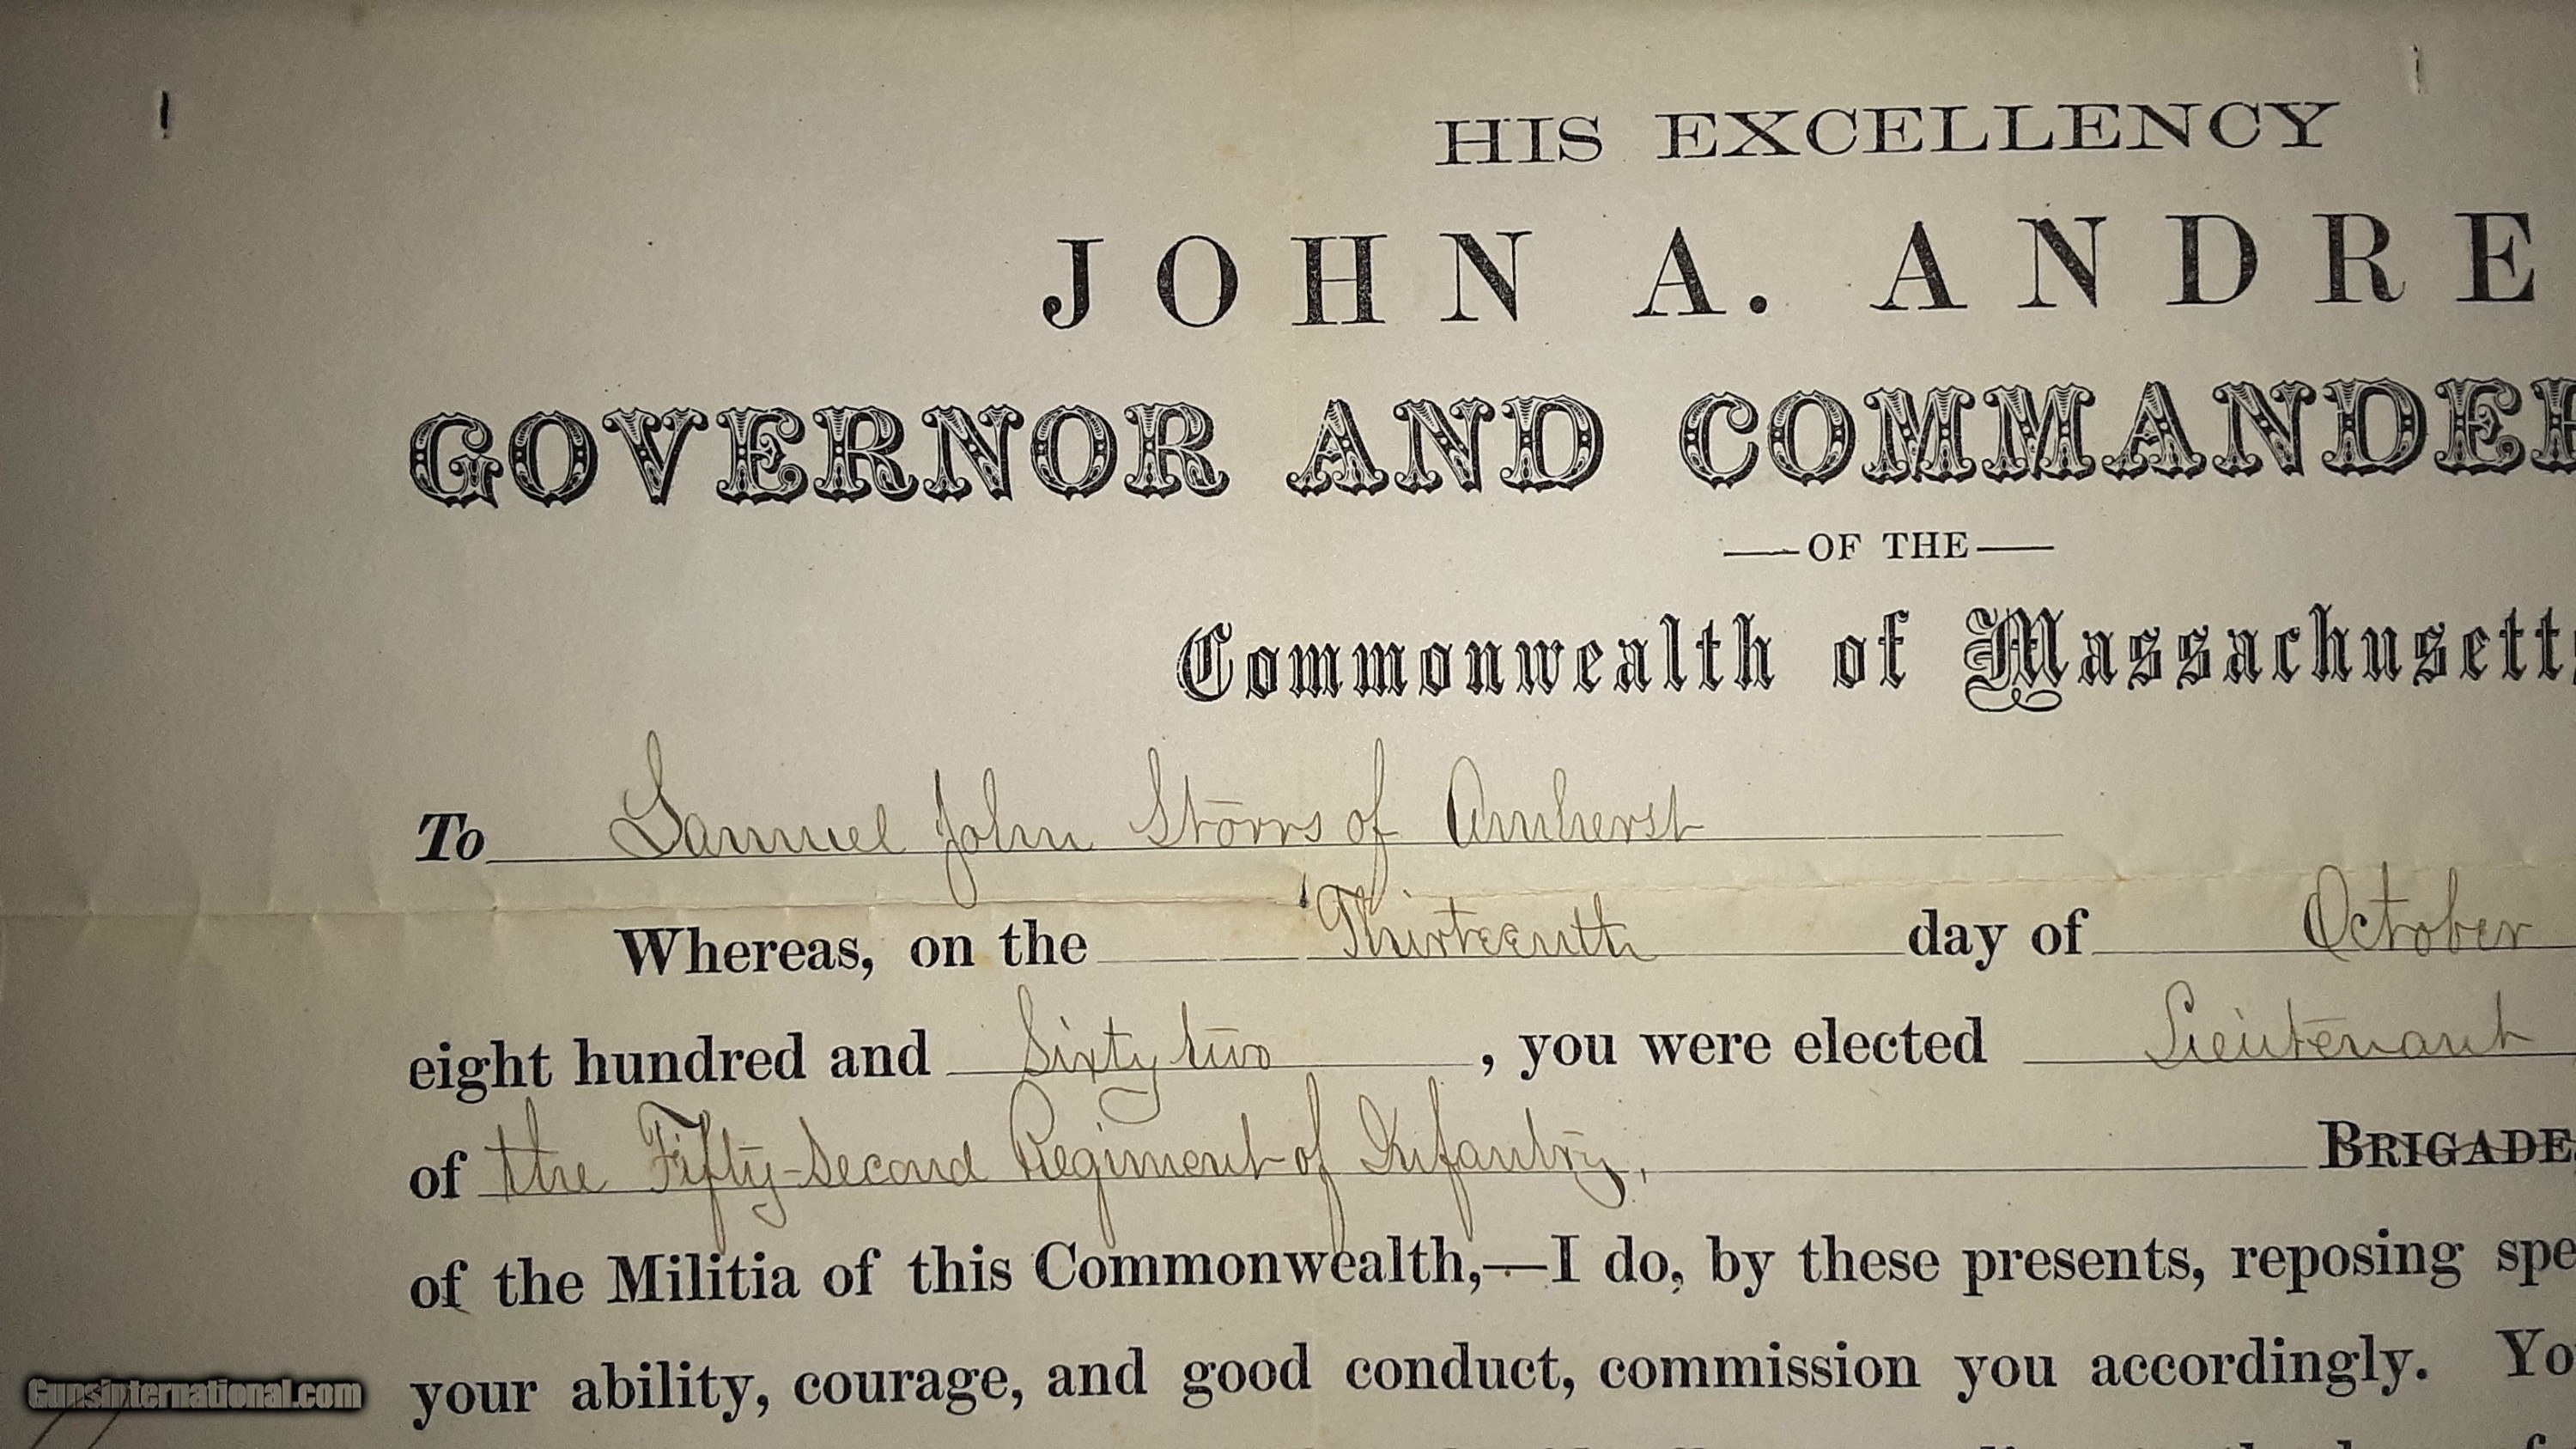 HIS EXCELLENCY
JOHN A. ANDRE
GOVERNOR AND COMMANDER
OF THE
Commonwealth of Massachusetts
To Samuel John Storrs of Amherst
Whereas, on the Thirteenth day of October
eight hundred and Sixty two, you were elected Lieutenant
of the Fifty-Second Regiment of Infantry, BRIGADE
of the Militia of this Commonwealth,—I do, by these presents, reposing spe
your ability, courage, and good conduct, commission you accordingly. Yo
Gunsinternational.com